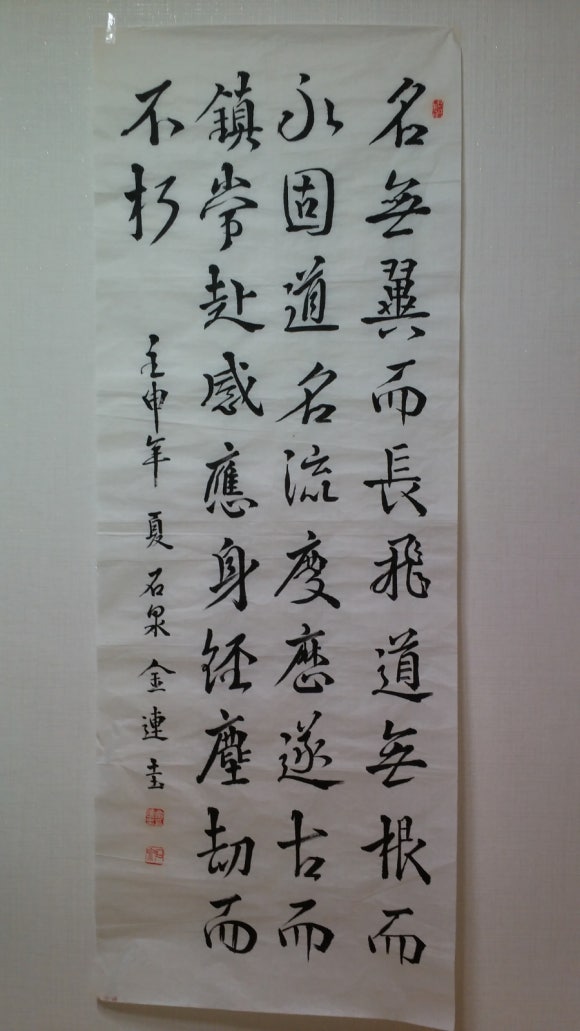 名無翼而長飛道無根而
永固道名流度歷遂古而
鎮常赴感應身經塵劫而
不朽
壬申年 夏 石泉 金連圭